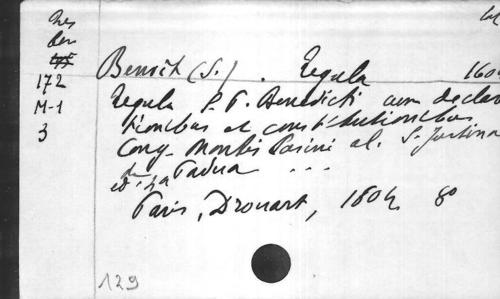 Res
ben
172
M-1
3
Benoît (S.). Regula 160
Regula S. P. Benedicti cum declar
tionibus et constitutionibus
Cong. Montis Casini al. S. Justina
de Padua ...
Paris, Drouart, 1604 8º
129